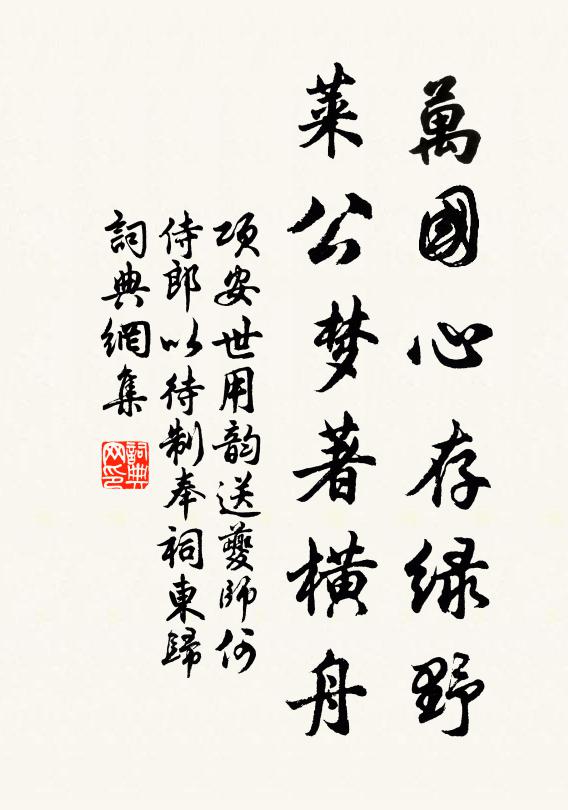 萬國心存緑野
萊公梦著横舟
项安世用韵送夔師何
侍郎以待制奉祠東歸
詞典網集
詞典网印